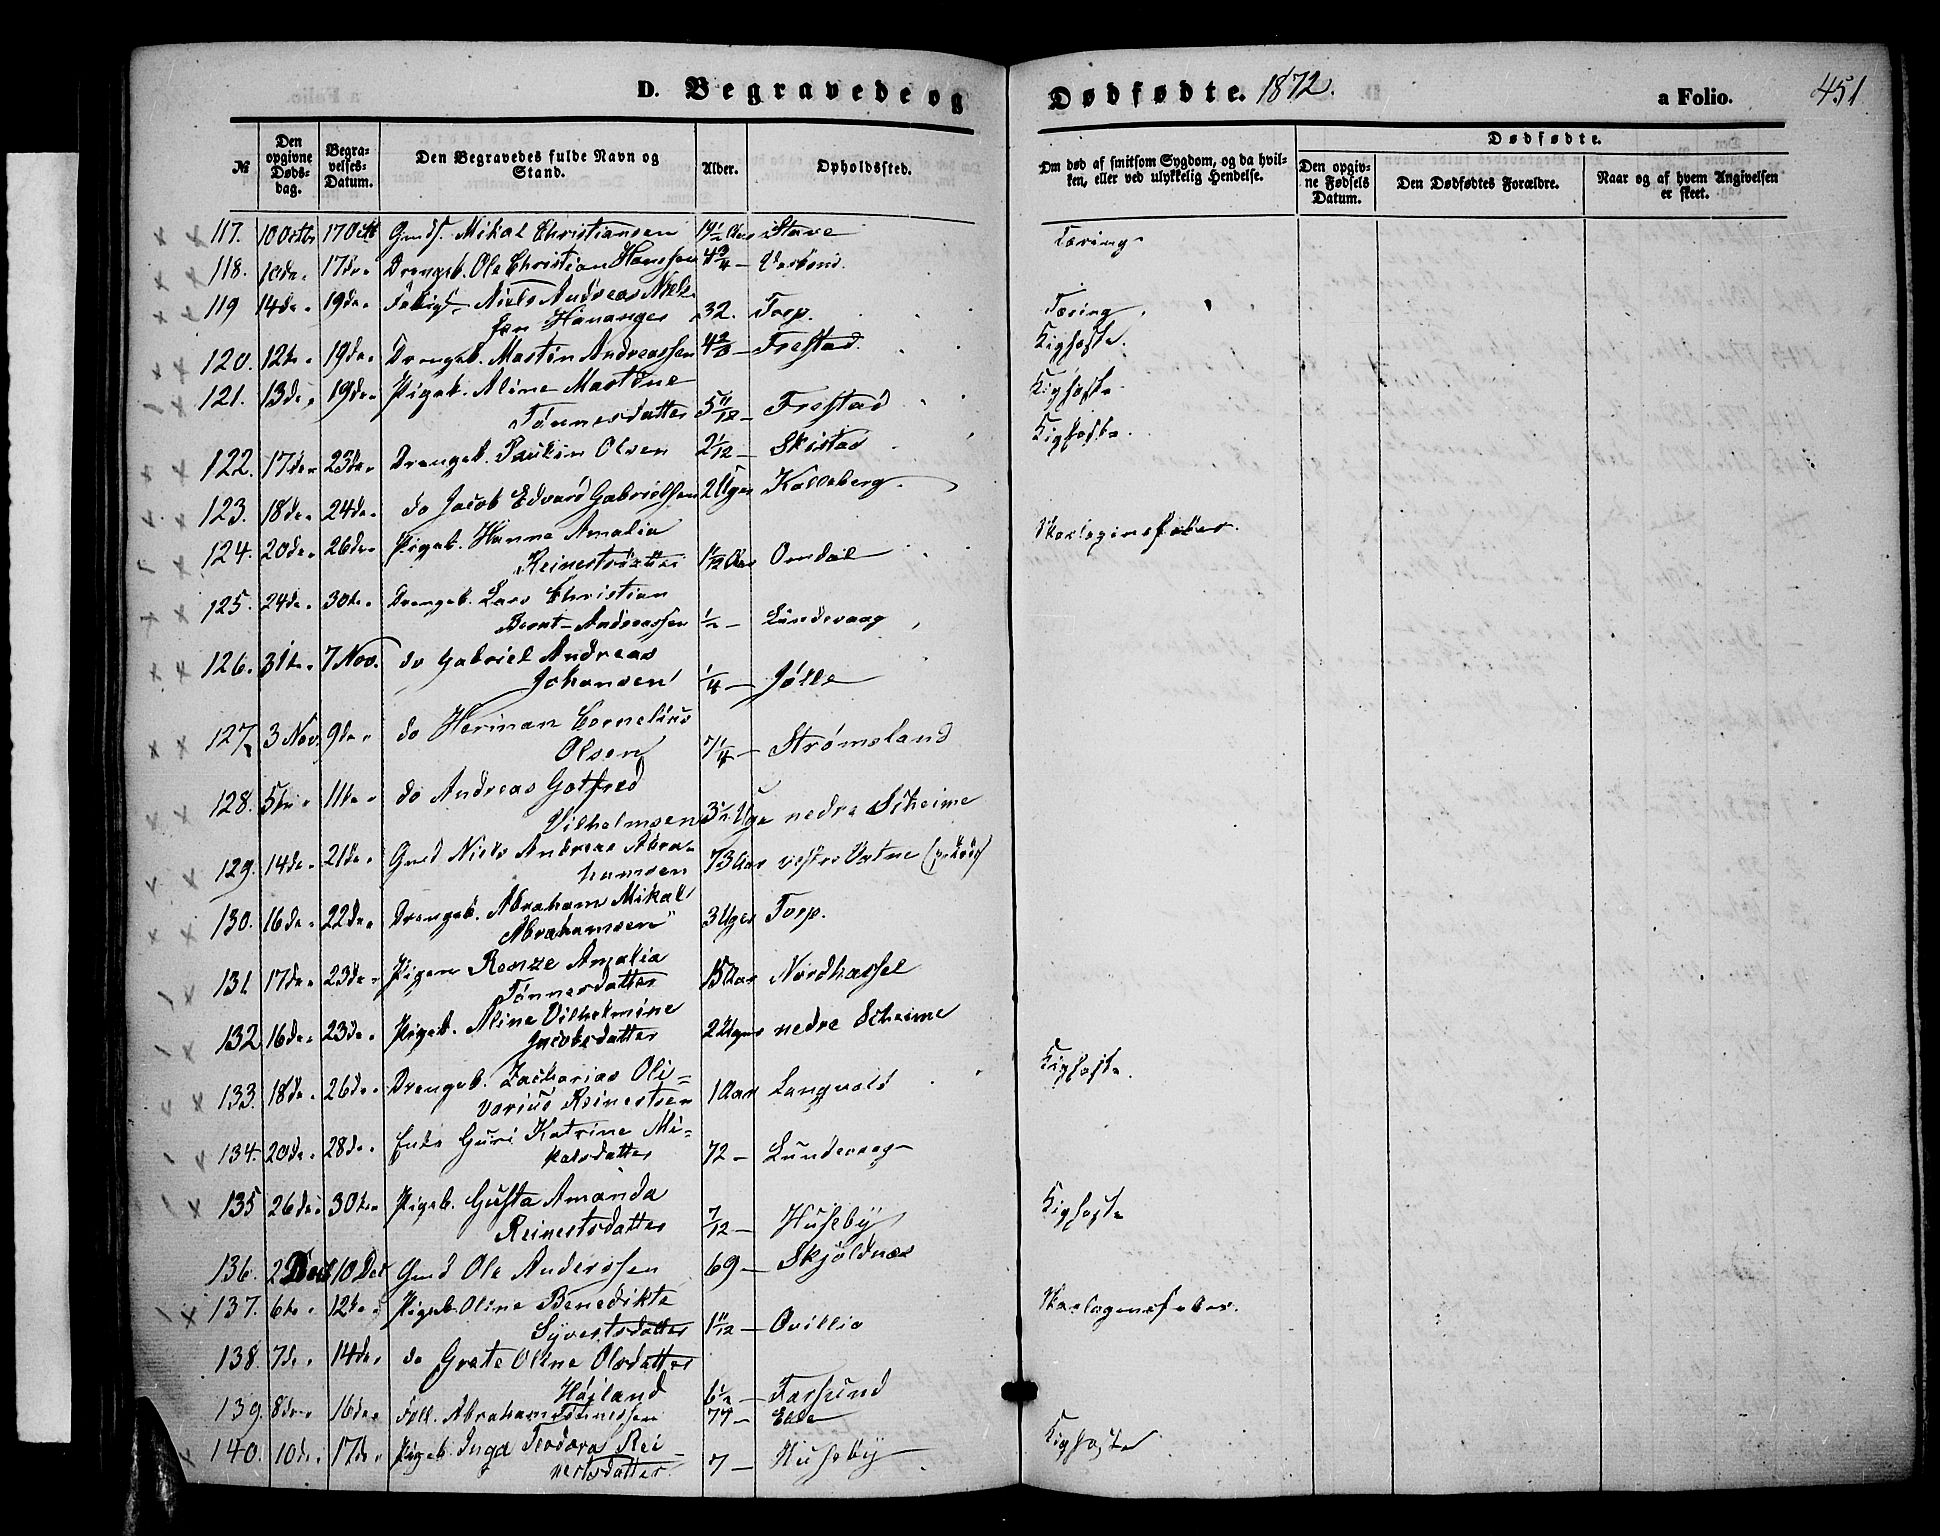 D. Begravede og Dødfødte. 1872. a Folio. 451
№ Den opgivne Dødsdag. Begravelses-Datum. Den Begravedes fulde Navn og Stand. Alder. Opholdssted. Om død af smitsom Sygdom, og da hvilken, eller ved ulykkelig Hendelse. Dødfødte. Den opgivne Fødsels Datum. Den Dødfødtes Forældre. Naar og af hvem Angivelsen er skeet.
117. 10 Octbr 17 Oct Mikal Christiansen Stave Tæring
118. 10de 17de Drengeb. Ole Christian Hanssen 4 3/4 –
119 14de 19de Niels Andreas
Hananger 32. Torp. Tæring
120. 12te 19de Drengeb. Martin Andreassen 4 2/3 – Frestad. Kighoste.
121. 13de 19de Pigeb. Aline Martine
Tønnesdatter 5 11/12 – Frestad Kighoste
122. 17de 23de Drengeb. Olsen 2 1/12 – Skistad Kighoste.
123. 18de 24de do Jacob Edvard Gabrielsen 2 Uger Kalleberg
124. 20de 26de Pigeb. Hanne Amalia
Reinertsdatter 1 1/2 Aar Omdal Skarlagensfeber.
125. 24de 30te Drengeb. Lars Christian
Bernt Andreassen 1/2 – Lundevaag
126. 31te 7 Nov. do Gabriel Andreas
Johansen 1/4 – Jølle
127. 3 Nov. 9de do Herman Cornelius
Olsen 7 1/4 – Strømsland
128. 5te 11te do Andreas Gotfred
Vilhelmsen 3 1/2 Uge nedre Skeime
129. 14de 21de Gmd Niels Andreas Abra-
hamsen 73 Aar vestre Vatne
130. 16de 22de Drengeb. Abraham Mikal
Abrahamsen 3 Uger Torp.
131. 17de 23de Pigen Amalia
Tønnesdatter 15 Aar Nordhassel
132. 16de 23de Pigeb. Aline Vilhelmine
Jacobsdatter 2 Uger nedre Skeime
133. 18de 26de Drengeb. Zacharias Oli-
varius Reinertsen 1 Aar Langvold Kighoste.
134. 20de 28de Enke Guri Katrine Mi-
kalsdatter 72 – Lundevaag
135 26de 30te Pigeb. Gusta Amanda
Reinertsdatter 7/12 – Huseby Kighoste
136. 2 Dec 10 Dec Gmd Ole Anderssen 69 – Skjoldnæs
137. 6te 12te Pigeb. Oline Benedikte
Syvertsdatter 1 11/12 – Ovillia Skarlagensfeber.
138. 7de 14de do Grete Oline Olsdatter
Høiland 6 1/2 – Farsund
139. 8de 16de Abraham Tønnessen 77 –
140. 10de 17de Pigeb. Inga Teodora Rei-
nertsdatter 7 – Huseby Kighoste